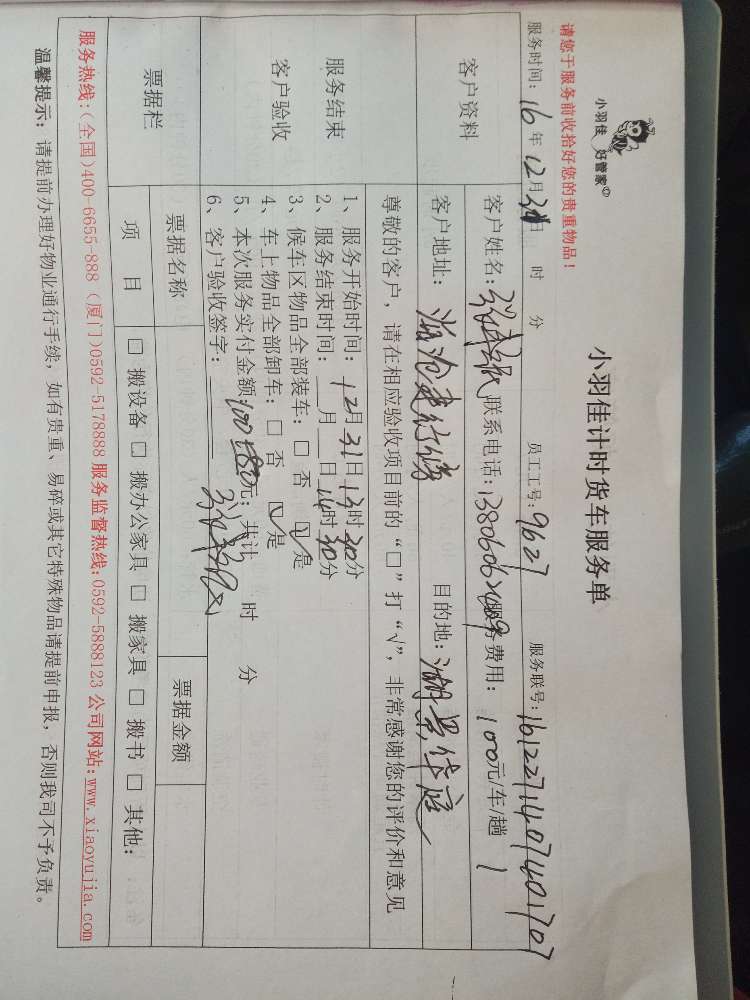 小羽佳 好管家
小羽佳计时货车服务单
请您于服务前收拾好您的贵重物品！
服务时间：16年12月31日 时 分 员工工号：9627 服务联号：1612271407401707
客户资料
客户姓名： 联系电话： 服务费用：100元/车/趟 1
客户地址： 建行 目的地：湖景华庭
尊敬的客户，请在相应验收项目前的“□”打“√”，非常感谢您的评价和意见
服务结束
客户验收
1、服务开始时间：12月31日13时30分
2、服务结束时间：__月__日14时30分
3、候车区物品全部装车：□ 否 ☑ 是
4、车上物品全部卸车：□ 否 ☑ 是
5、本次服务实付金额：100+80元；共计 时 分
6、客户验收签字：
票据栏
票据名称 票据金额
项 目 □ 搬设备 □ 搬办公家具 □ 搬家具 □ 搬书 □ 其他：
服务热线：（全国）400-6655-888（厦门）0592-5178888 服务监督热线：0592-5888123 公司网站：www.xiaoyujia.com
温馨提示：请提前办理好物业通行手续，如有贵重、易碎或其它特殊物品请提前申报，否则我司不予负责。